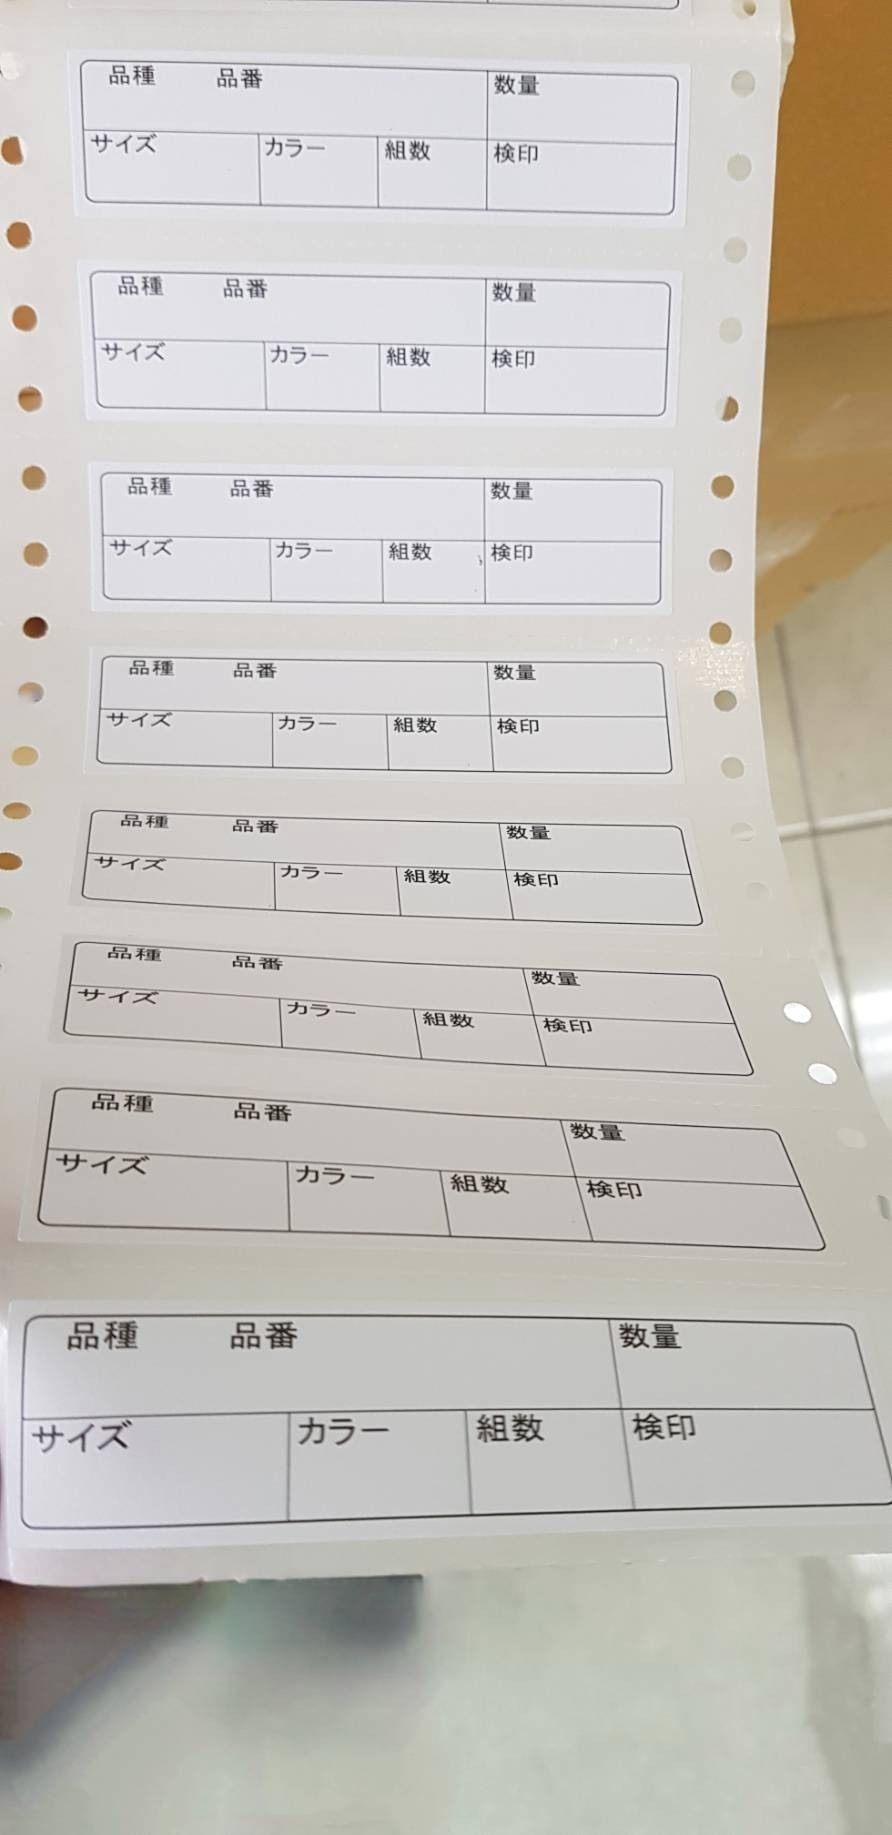 品種 品番 数量
サイズ カラー 組数 検印
品種 品番 数量
サイズ カラー 組数 検印
品種 品番 数量
サイズ カラー 組数 検印
品種 品番 数量
サイズ カラー 組数 検印
品種 品番 数量
サイズ カラー 組数 検印
品種 品番 数量
サイズ カラー 組数 検印
品種 品番 数量
サイズ カラー 組数 検印
品種 品番 数量
サイズ カラー 組数 検印